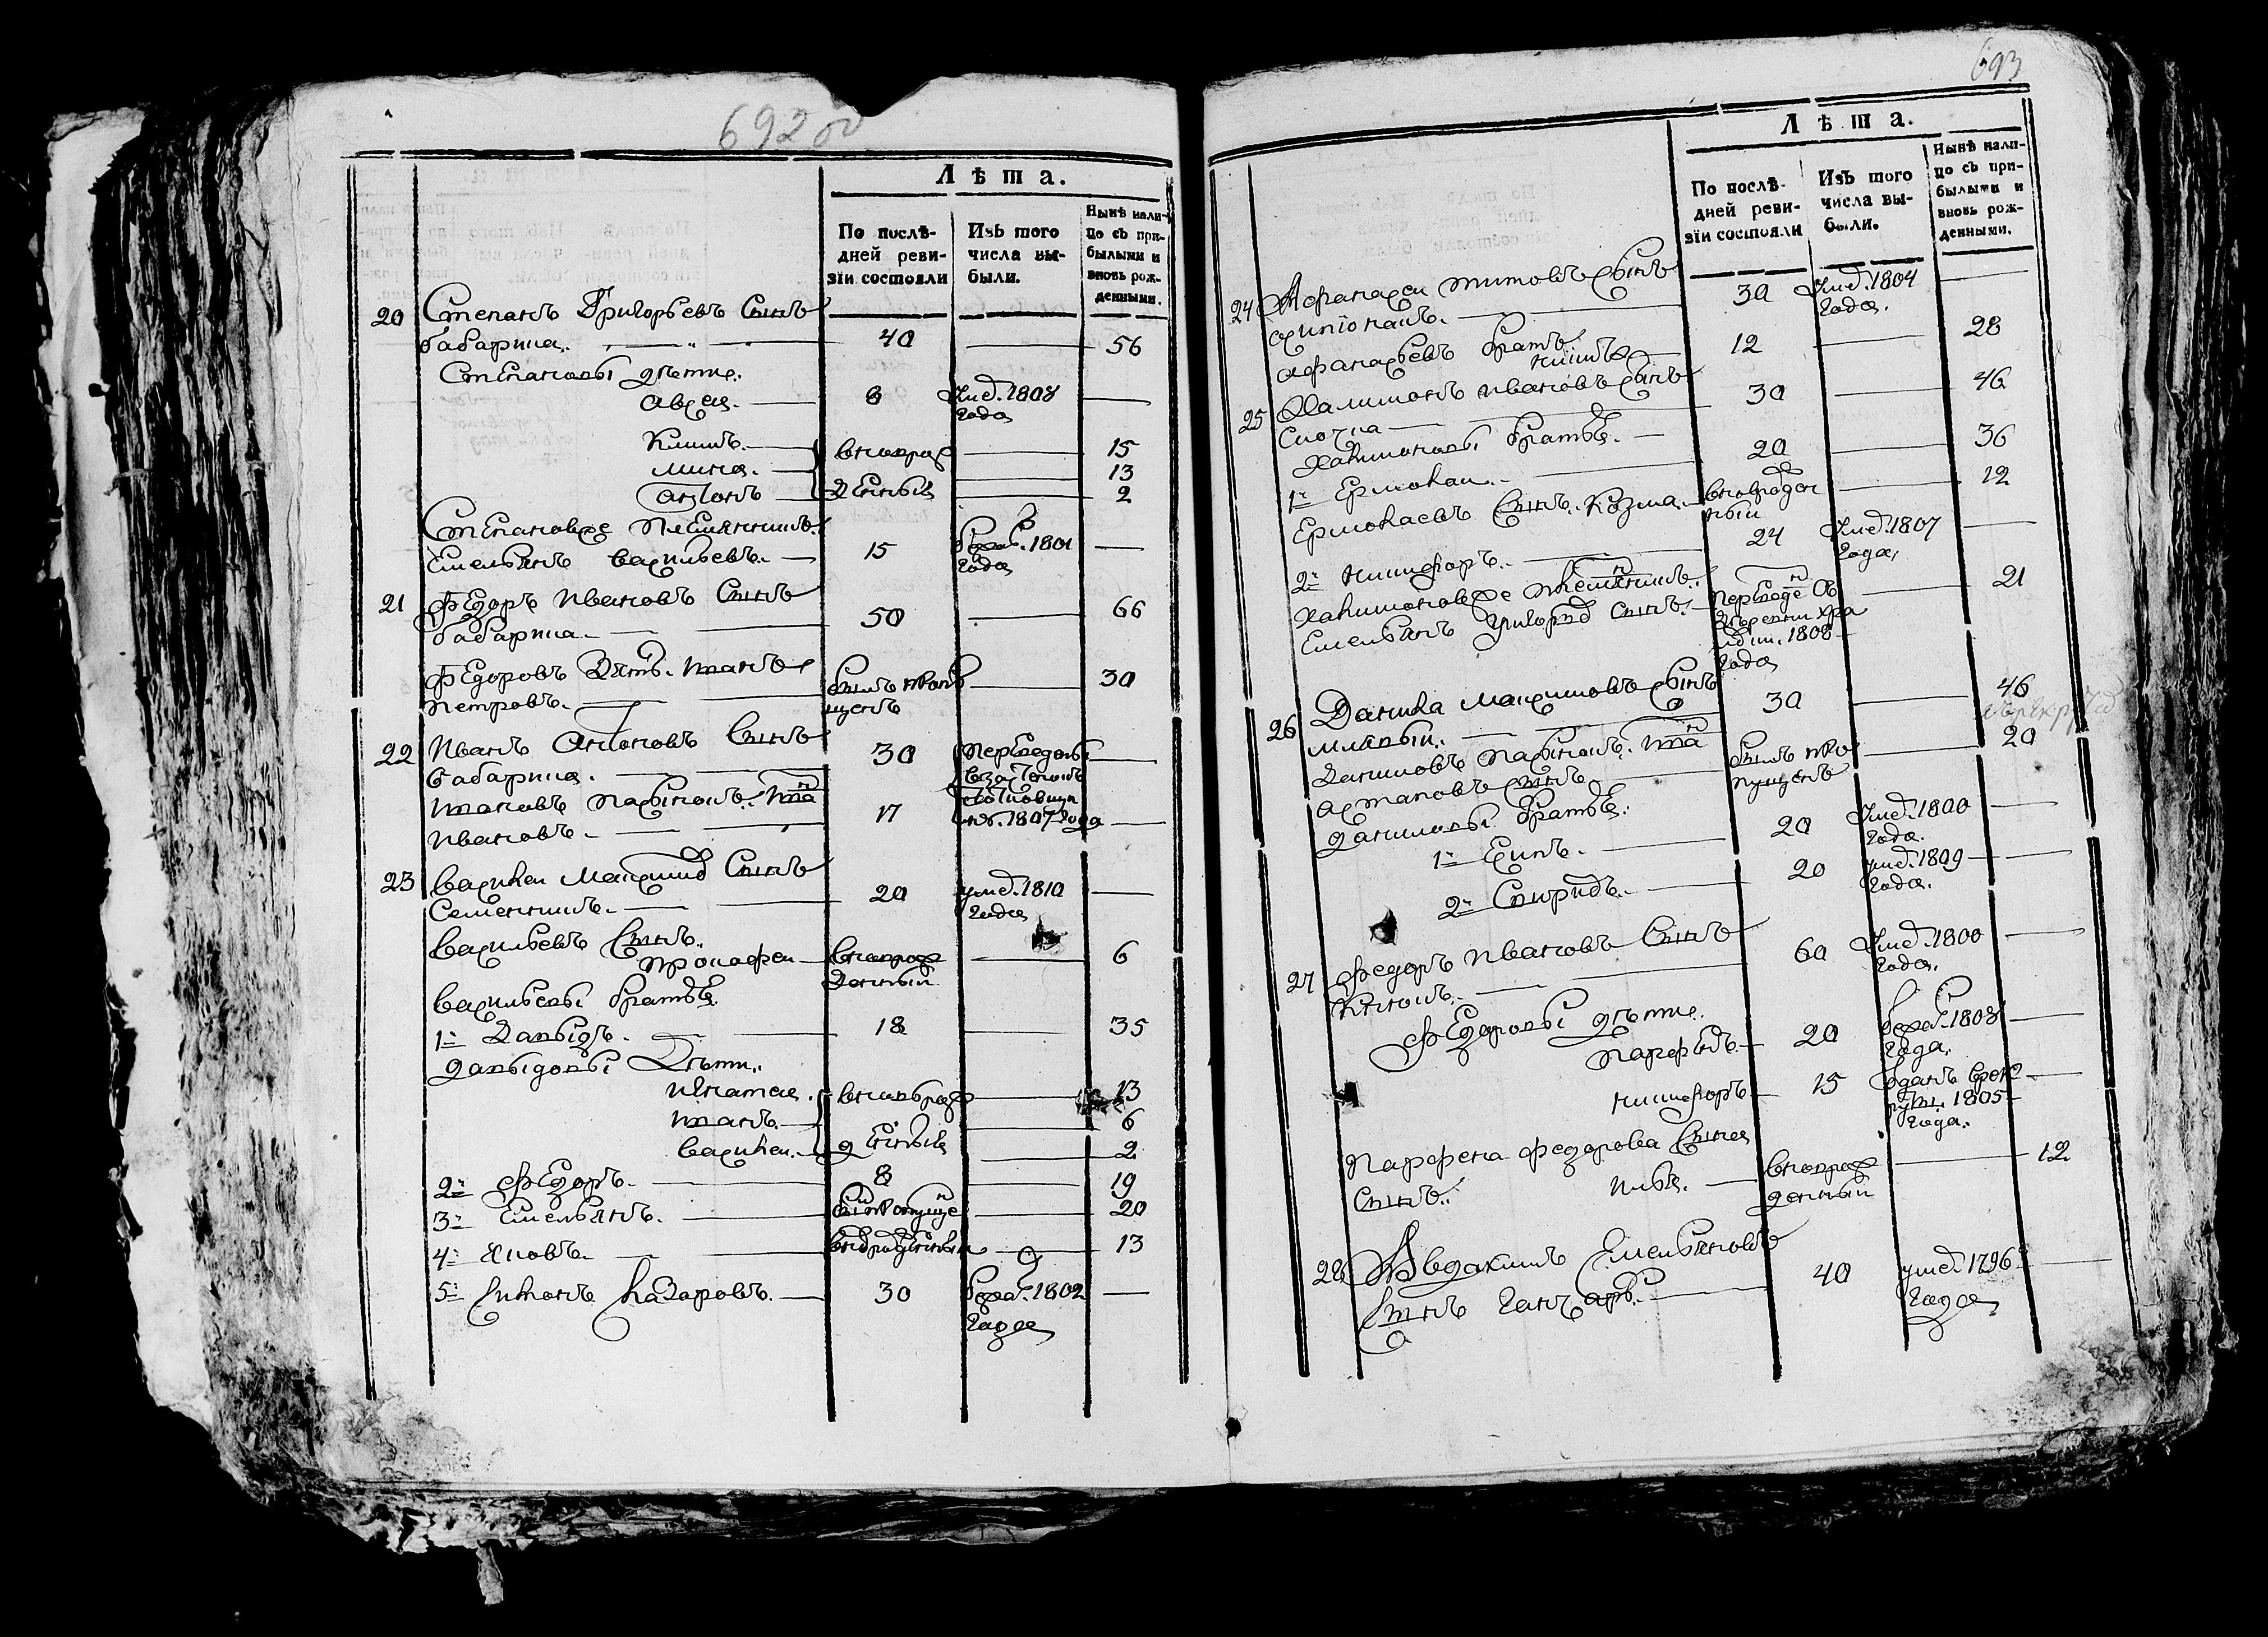 692 об
Лѣта.
По послѣ-
дней реви-
зїи состояли
Изъ того
числа вы-
были.
Нынѣ нали-
цо съ при-
былыми и
вновь рож-
денными.
20 Степанъ Григорьевъ Сынъ
бабарица. 40 56
Степановы дѣти.
Авсей. 8 Умер. 1808
года
Климъ. вновърож 15
мина. 13
Антонъ денные 2
Степановъ племянникъ
Емельянъ васильевъ. 15 бежал. 1801
года
21 Федоръ Ивановъ Сынъ
бабарица. 50 66
Федоровъ Зять. Иванъ
Петровъ. былъ пропу
щенъ 30
22 Иванъ Антоновъ Сынъ
бабарица. 30 Переведены
Ивановъ пасынокъ. Иван
Ивановъ. 17 1807 года
23 василей Максимов Сынъ
Семенникъ. 20 умер. 1810
года
васильевъ Сынъ.
Прокофей вновьрож
денный 6
васильевы братья
1й давыдъ. 18 35
давыдовы дѣти.
игнатей. вновьрож 13
Иванъ. 6
василей. денные 2
2й Федоръ. 8 19
3й Емельянъ. 20
4й Яковъ. вновьрожденный 13
5й Никонъ Назаровъ. 30 бежал. 1802
года
693
Лѣта.
По послѣ-
дней реви-
зїи состояли
Изъ того
числа вы-
были.
Нынѣ нали-
цо съ при-
былыми и
вновь рож-
денными.
24 Афанасей Титовъ сынъ
30 Умер. 1804
года.
Афанасьевъ братъ
12 28
25 Филимонъ Ивановъ сынъ
30 46
братья.
1й Ермолай. 20 36
Ермолаевъ Сынъ. Козма. вноврожден
ный 12
2й Никифоръ. 24 Умер. 1807
года,
племянникъ
Емельянъ Григорьев сынъ. 21
1808
года
26 Данила Максимовъ сынъ
30 46
Даниловъ пасынокъ.
Астаповъ сынъ былъ про
пущенъ 20
даниловы братья.
1й 20 Умер. 1800
года.
2й Спиридъ. 20 умер. 1809
года.
27 Федоръ Ивановъ Сынъ
60 Умер. 1800
года.
Федоровы дѣти.
Парфенъ 20 бежал. 1808
года,
никифоръ 15 Отданъ врек
руты 1805
года.
Парфена Федорова Сына
Сынъ. илья. вновьрож
денный 12
28 Авдакимъ Емельяновъ
Сынъ Ганчаръ. 40 умер. 1796
года